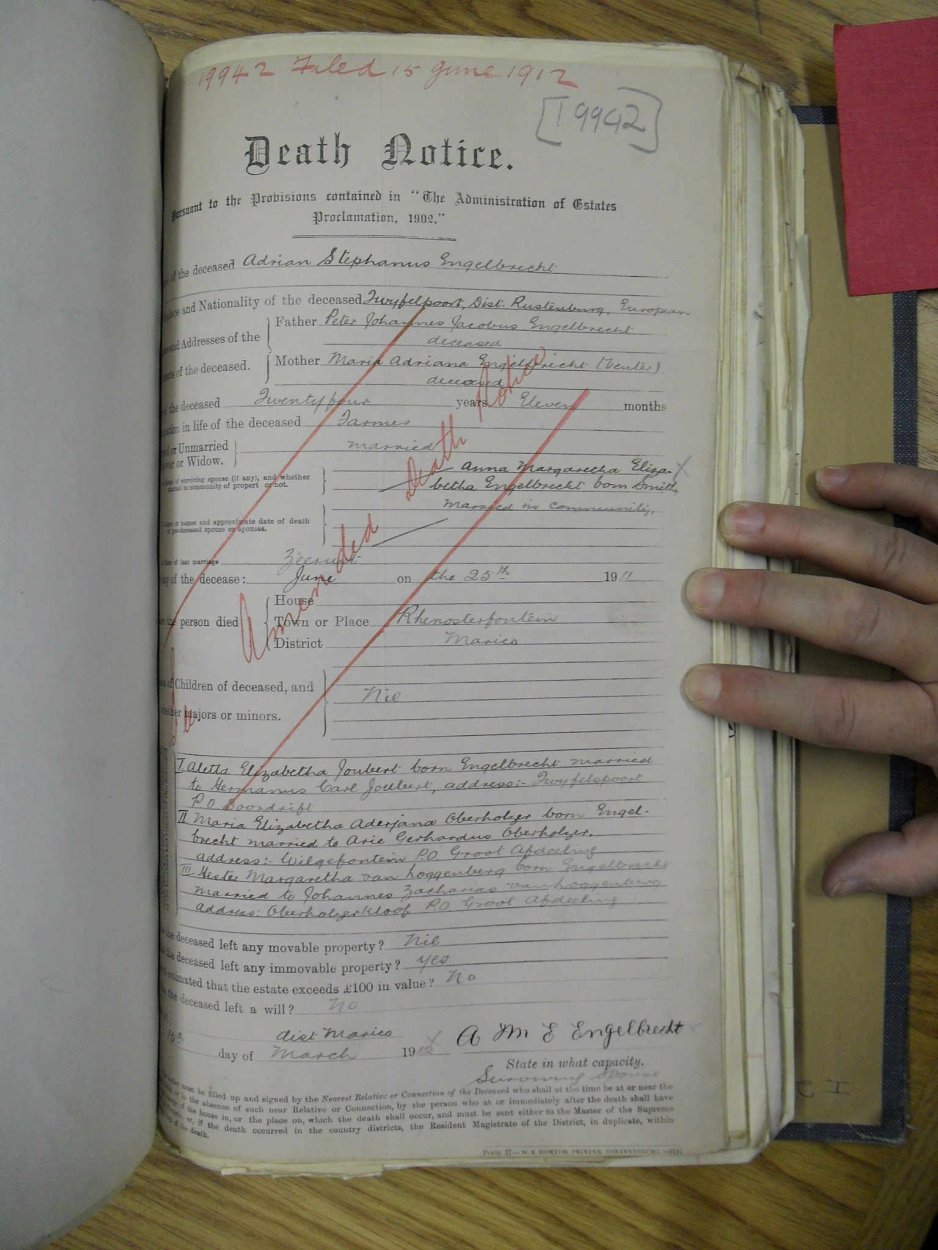 19942 Filed 15 June 1912
[19942]
Death Notice.
Pursuant to the Provisions contained in "The Administration of Estates
Proclamation, 1902."
of the deceased Adrian Stephanus Engelbrecht
and Nationality of the deceased Twyfelpoort, Dist. Rustenburg, European
Father Peter Johannes Jacobus Engelbrecht
and Addresses of the
deceased
of the deceased.
Mother Maria Adriana Engelbrecht (Venter)
deceased
the deceased Twentyfour years Eleven months
in life of the deceased Farmer
or Unmarried
or Widow.
married
of surviving spouse (if any), and whether
married in community of propert or not.
Anna Margaretha Eliza-
betha Engelbrecht born Smith,
married in community.
or names and approximate date of death
of pre-deceased spouse or spouses.
of last marriage Zeerust
of the decease: June on the 25th 1911
the person died
House
Town or Place Rhenosterfontein
District Marico
Children of deceased, and
majors or minors.
Nil
Amended Death Notice
I Aletta Elizabetha Joubert born Engelbrecht married
to Hermanus Carl Joubert, address:- Twyfelspoort
P.O Doordrift
II Maria Elizabetha Aderjana Oberholzer born Engel-
brecht married to Arie Gerhardus Oberholzer.
address:- Wilgefontein P.O Groot Afdeeling
III Hester Margaretha van hoggenberg born Engelbrecht
married to Johannes Zacharias van hoggenberg
address: Oberholzerkloof P.O Groot Afdeeling
the deceased left any movable property? Nil
the deceased left any immovable property? Yes
estimated that the estate exceeds £100 in value? No
the deceased left a will? No
dist Marico
day of March 19
A M E Engelbrecht
State in what capacity.
Surviving Spouse
must be filled up and signed by the Nearest Relative or Connection of the Deceased who shall at the time be at or near the
in the absence of such near Relative or Connection, by the person who at or immediately after the death shall have
of the house in, or the place on, which the death shall occur, and must be sent either to the Master of the Supreme
or, if the death occurred in the country districts, the Resident Magistrate of the District, in duplicate, within
of the death.